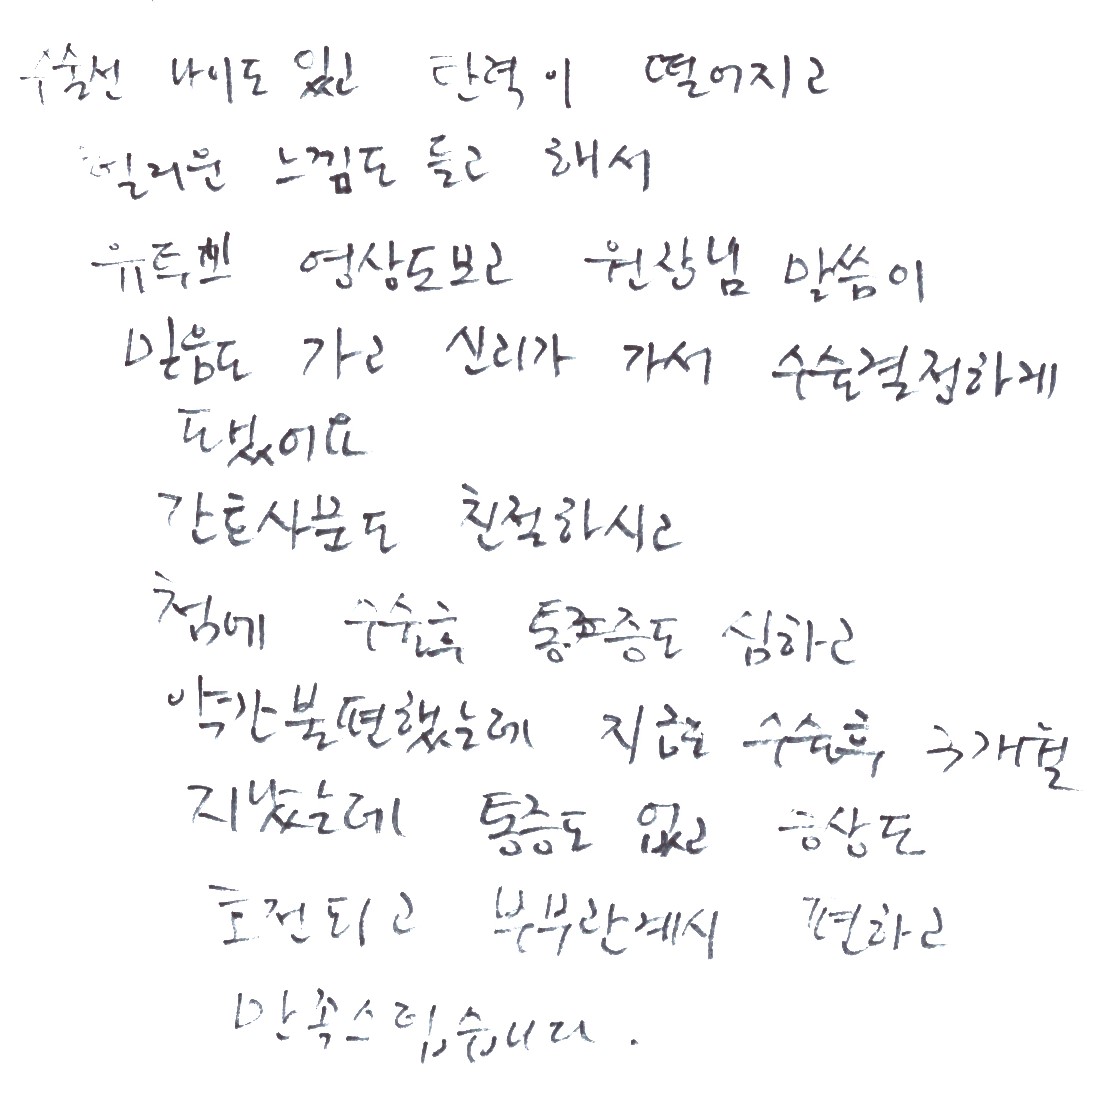 수술전 나이도 있고 탄력이 떨어지고
헐거운 느낌도 들고 해서
유튜브 영상도보고 원장님 말씀이
믿음도 가고 신뢰가 가서 수술결정하게
되었어요
간호사분도 친절하시고
첨에 수술후 통증도 심하고
약간불편했는데 지금은 수술후, 3개월
지났는데 통증도 없고 증상도
호전되고 부부관계시 편하고
만족스럽습니다.